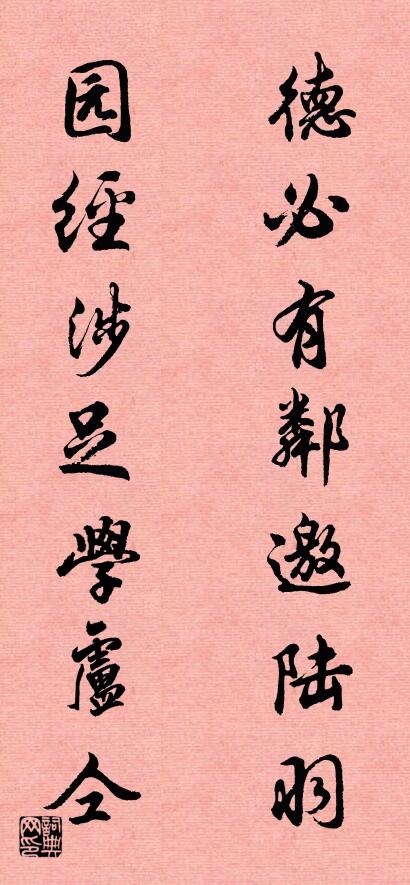 德必有鄰邀陆羽
园經涉足學盧仝
詞典网印